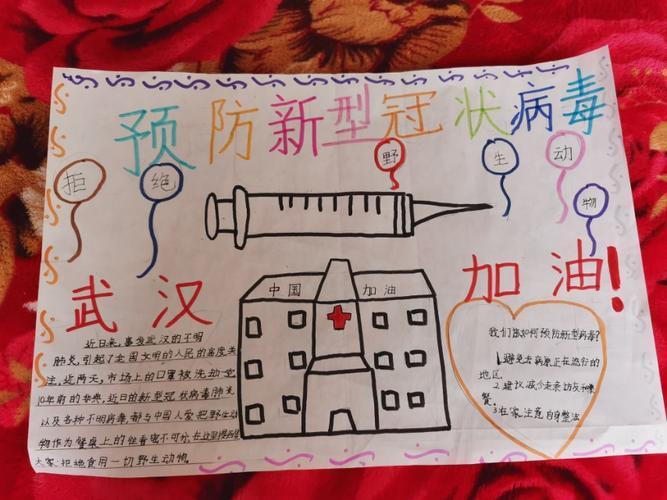 预防新型冠状病毒
拒绝
野生动物
武汉
加油!
中国 加油
近日来,事发武汉的不明
肺炎,引起了全国文明的人民的高度关
注,近两天,市场上的口罩被洗劫一空
10年前的非典,近日的新型冠状病毒肺炎
以及各种不明病毒,都与中国人爱把野生动
物作为餐桌上的佳肴密不可分,在这里
大家:拒绝食用一切野生动物。
我们该如何预防新型病毒?
1.避免去病原正在流行的
地区
2.建议减少走亲访友和聚
餐
3.在家注意自身整洁